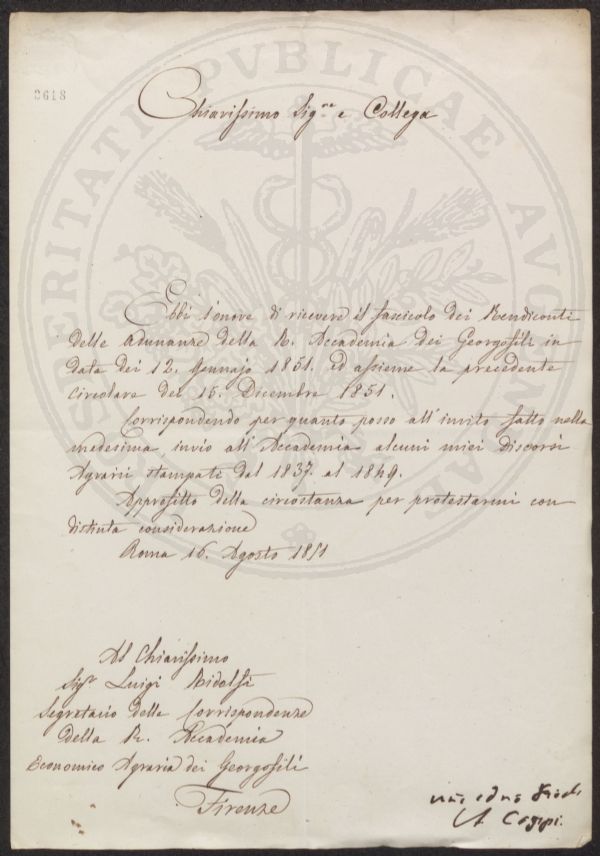 0618
PROSPERITATI PVBLICAE AVGENDAE
Chiarissimo Sig.re e Collega
Ebbi l'onore di ricevere il fascicolo dei Rendiconti
delle adunanze della R. Accademia dei Georgofili in
data dei 12. Gennajo 1851. ed assieme la precedente
circolare dei 15. Dicembre 1851.
Corrispondendo per quanto posso all'invito fatto nella
medesima, invio all'Accademia alcuni miei Discorsi
Agrarii stampati dal 1837. al 1849.
Approfitto della circostanza per protestarmi con
distinta considerazione
Roma 16. Agosto 1851
Al Chiarissimo
Sigr Luigi Ridolfi
Segretario delle Corrispondenze
della R. Accademia
Economico Agraria dei Georgofili
Firenze